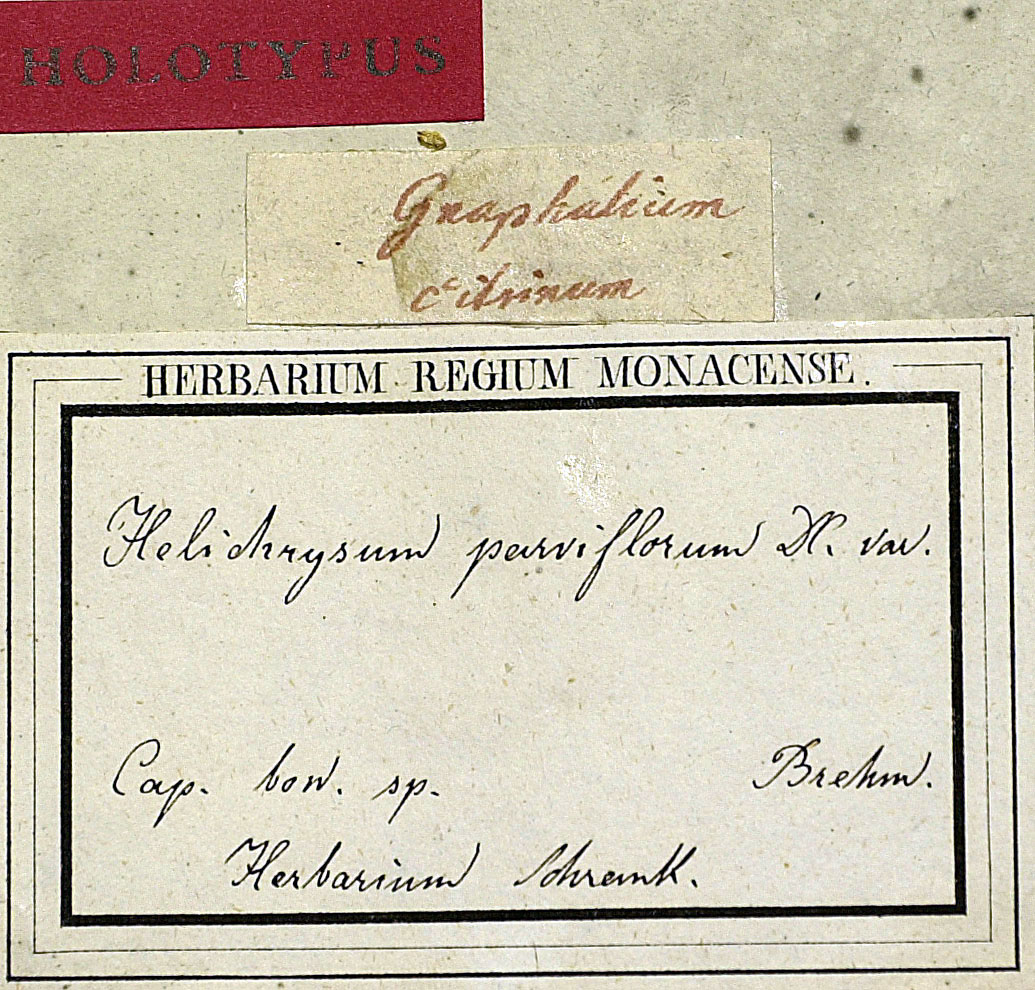 HOLOTYPUS
Gnaphalium
citrinum
HERBARIUM REGIUM MONACENSE.
Helichrysum parviflorum DC. var.
Cap. bon. sp. Brehm.
Herbarium Schrank.